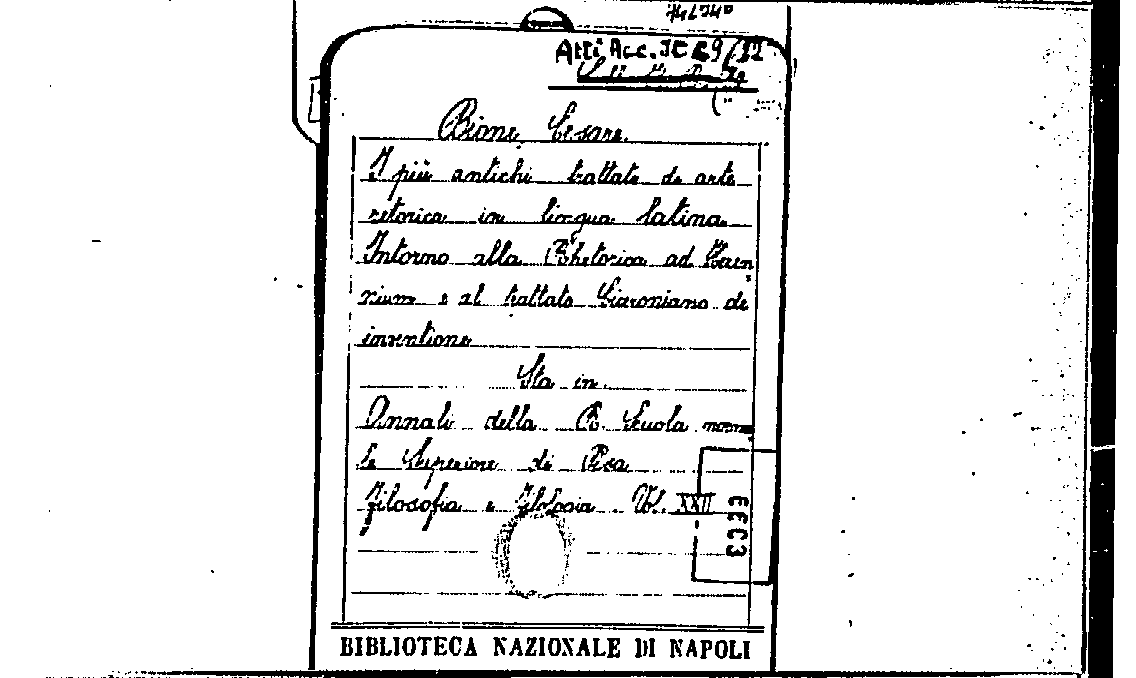 Atti Acc. IC 69/22
Bione Cesare.
I più antichi trattati di arte
retorica in lingua latina.
Intorno alla Rhetorica ad Heren
nium e al trattato Ciceroniano de
inventione
Sta in
Annali della R. Scuola norma
le Superiore di Pisa
Filosofia e Filologia. Vol. XXII
EEC3
BIBLIOTECA NAZIONALE DI NAPOLI